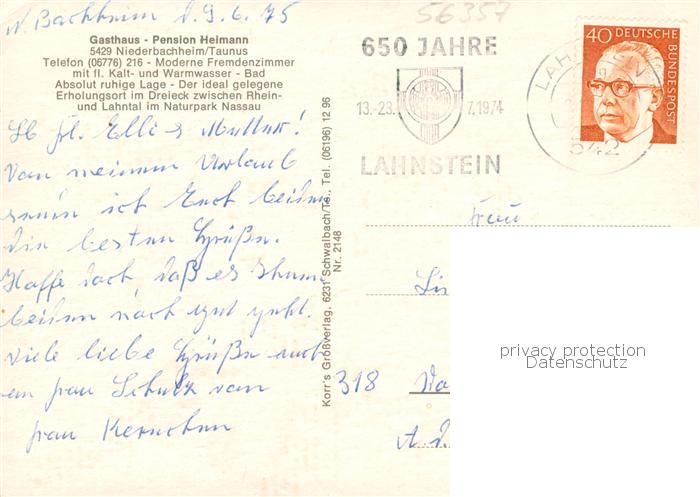 N. Bachheim d. 9. 6. 75
56357
Gasthaus - Pension Heimann
5429 Niederbachheim/Taunus
Telefon (06776) 216 - Moderne Fremdenzimmer
mit fl. Kalt- und Warmwasser - Bad
Absolut ruhige Lage - Der ideal gelegene
Erholungsort im Dreieck zwischen Rhein-
und Lahntal im Naturpark Nassau
Lb. Elli u Mutter!
Von meinem Urlaub
ich Euch beiden
die besten Grüße.
Hoffe doch, daß es Ihnen
beiden noch gut geht.
Viele liebe Grüße auch
an Frau Schulz von
Frau
Korr's Großverlag, 6231 Schwalbach/Ts., Tel. (06196) 12 96
Nr. 2148
650 JAHRE
13.-23. 7.1974
LAHNSTEIN
LAHNSTEIN
542
40 DEUTSCHE
BUNDESPOST
Frau
318
privacy protection
Datenschutz